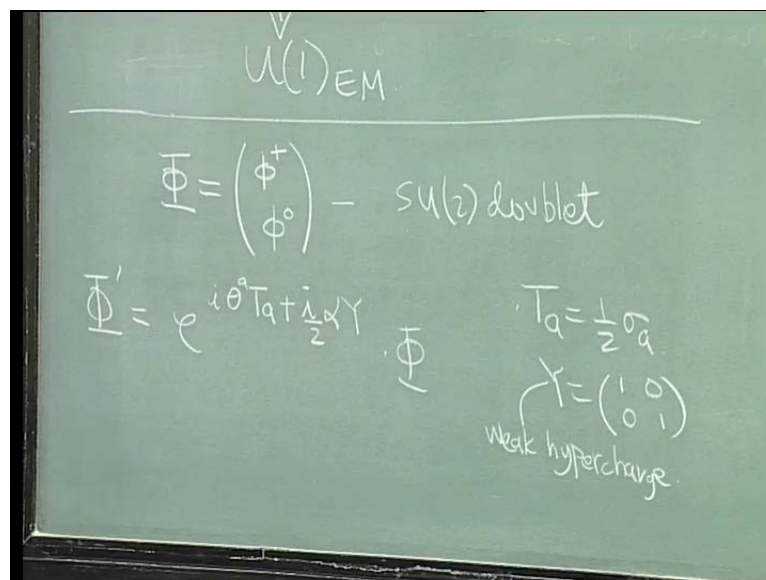 U(1)EM.
Φ = (ϕ⁺ ϕ⁰) – SU(2) doublet
Φ' = e^{iθᵃTa + i/2 αY} · Φ
Ta = 1/2 σa.
Y = (1 0 0 1)
weak hypercharge.